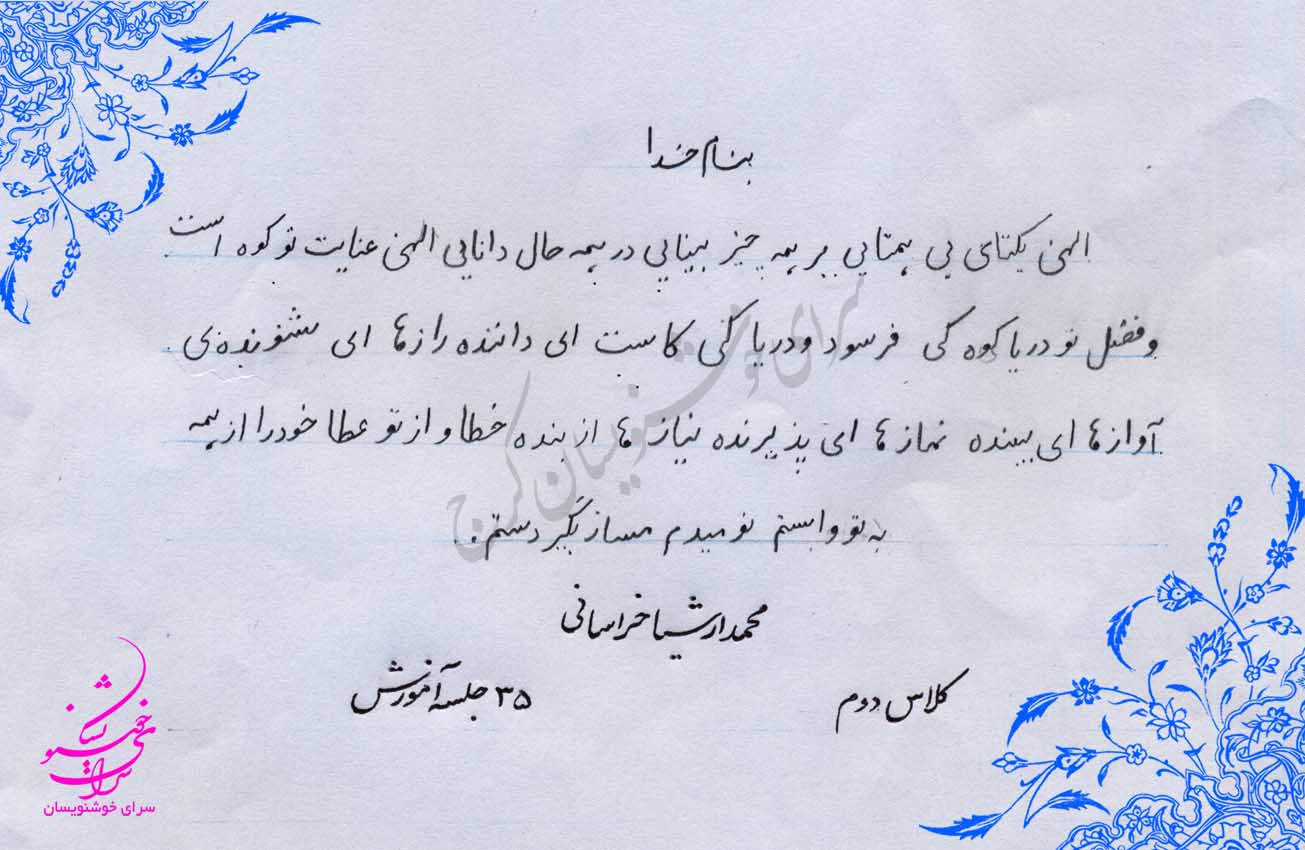 بنام خدا
الهی یکتای بی همتایی بر همه چیز بینایی در همه حال دانایی الهی عنایت تو کوه است
و فضل تو دریا کوه کی فرسود و دریا کی کاست ای داننده رازها ای شنونده‌ی
آوازها ای بیننده نمازها ای پذیرنده نیازها از بنده خطا و از تو عطا خود را از همه
به تو وابستم نومیدم مساز بگیر دستم.
محمد ارشیا خراسانی
کلاس دوم
۳۵ جلسه آموزش
سرای خوشنویسان کرج
سرای خوشنویسان
سرای خوشنویسان